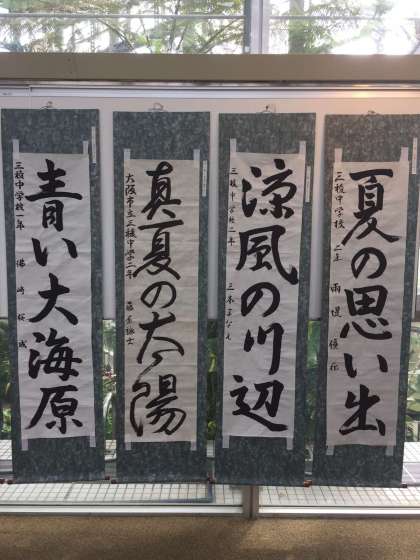 夏の思い出
三稜中学校
涼風の川辺
三稜中学校二年
真夏の太陽
大阪市立三稜中学二年
青い大海原
三稜中学校一年